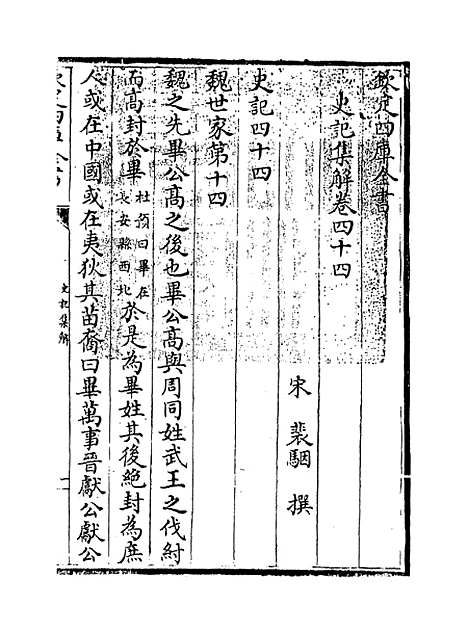 欽定四庫全書
史記集解卷四十四
宋 裴駰 撰
史記四十四
魏世家第十四
魏之先畢公高之後也畢公高與周同姓武王之伐紂
而高封於畢杜預曰畢在長安縣西北於是為畢姓其後絕封為庶
人或在中國或在夷狄其苗裔曰畢萬事晉獻公獻公
史記集解
一